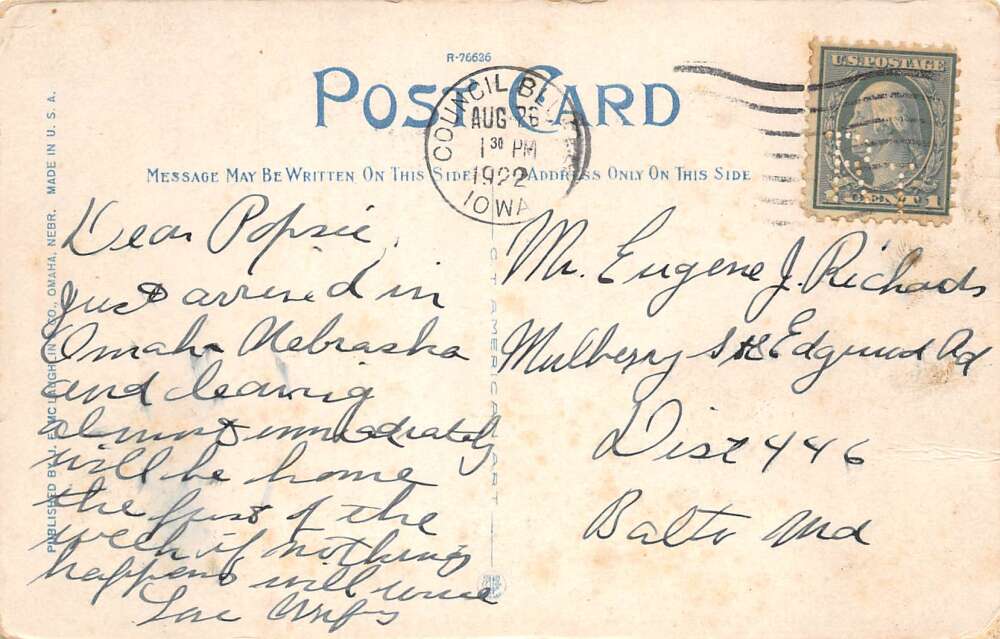 R-76626
POST CARD
COUNCIL BLUFFS
AUG 26
1 30 PM
1922
IOWA
U.S. POSTAGE
1
MESSAGE MAY BE WRITTEN ON THIS SIDE
ADDRESS ONLY ON THIS SIDE
PUBLISHED BY J. F. MCLAUGHLIN CO., OMAHA, NEBR. MADE IN U. S. A.
CT AMERICAN ART
Dear Popsie,
Just arrived in
Omaha Nebraska
and leaving
almost immediately
will be home
the first of the
week if nothing
happens will wire
Love
Mr. Eugene J. Richards
Mulberry Edgwood Rd
Dist 446
Balto Md